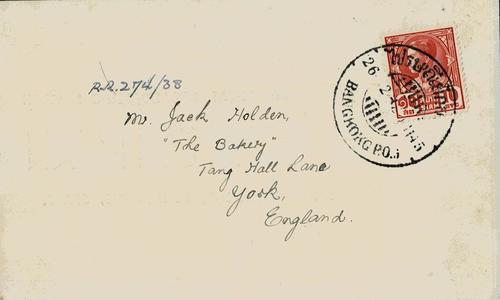 R.R.274/38
Mr. Jack Holden,
"The Bakery"
Tang Hall Lane
York,
England.
26
BANGKOK G.P.O.